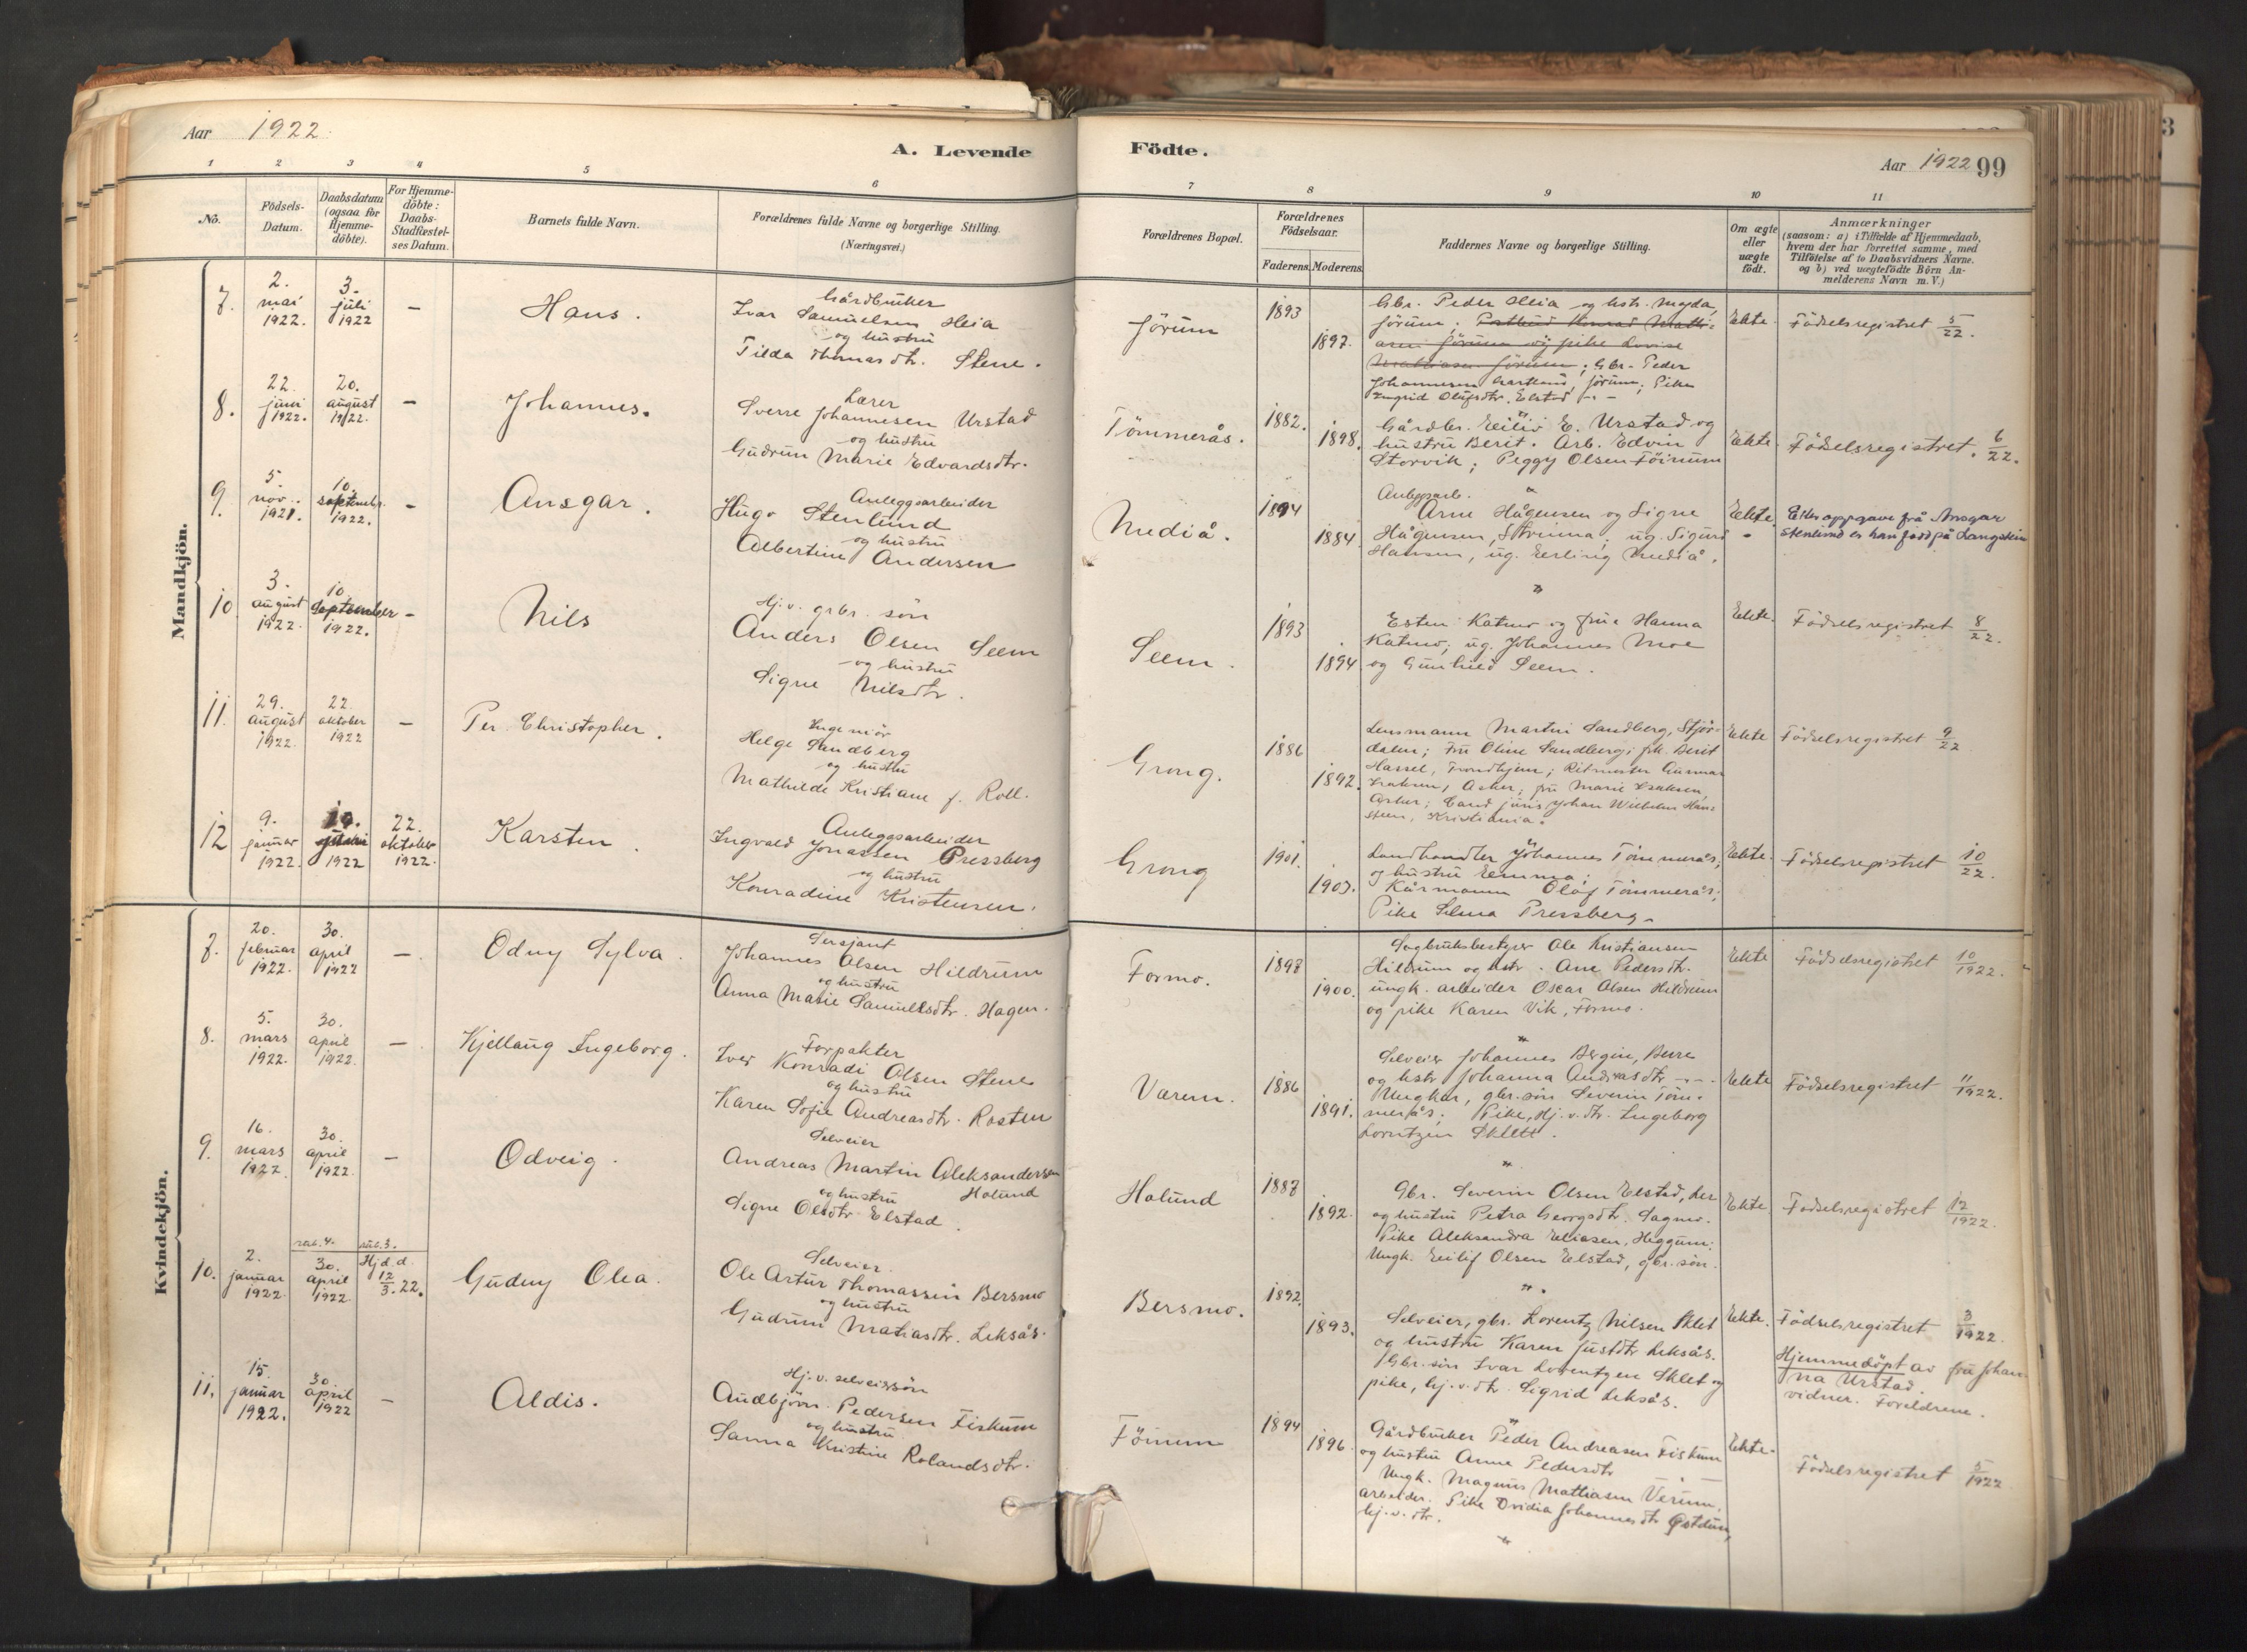 Aar 1922.
A. Levende
Födte.
Aar 1922 99
1 2 3 4 5 6
7 8 9 10 11
No.
Födsels-
Datum.
Daabsdatum
(ogsaa for
Hjemme-
döbte).
For Hjemme-
döbte:
Daabs-
Stadfæstel-
ses Datum.
Barnets fulde Navn.
Forældrenes fulde Navne og borgerlige Stilling.
(Næringsvei.)
Forældrenes Bopæl.
Forældrenes
Födselsaar.
Faderens. Moderens.
Faddernes Navne og borgerlige Stilling.
Om ægte
eller
uægte
födt.
Anmærkninger
(saasom: a) i Tilfælde af Hjemmedaab,
hvem der har forrettet samme, med
Tilföielse af to Daabsvidners Navne.
og b) ved uægtefödte Börn An-
melderens Navn m. V.)
Mandkjön.
7.
2.
mai
1922.
3.
juli
1922
—
Hans.
Gårdbruker
Ivar Samuelsen Heia
og hustru
Tilda Thomasdtr. Stene.
Jörum
1893
1897.
Gbr. Peder Heia og hstr. Magda,
Jörum;
; Gbr. Peder
Johannesen Gartland, Jörum; Pike
Ingrid Olufsdtr. Elstad
Ekte.
Födselsregistret 5/22.
8.
22.
juni
1922.
20.
august
1922.
—
Johannes.
Lærer
Sverre Johannesen Urstad
og hustru
Gudrun Marie Edvardsdtr.
Tömmerås.
1882.
1898.
Gårdbr. Eiliv E. Urstad og
hustru Berit. Arb. Edvin
Storvik; Peggy Olsen Föinum
Ekte
Födselsregistret. 6/22.
9.
5.
nov.
1921.
10.
septembr.
1922.
-
Ansgar.
Anleggsarbeider
Hugo Stenlund
og hustru
Albertine Andersen
Mediå.
1894
1884
Anleggsarb.
Arne Hågensen og Signe
Hågensen, ug. Sigurd
Hansen, ug. Erling Mediå.
Ekte
Efter oppgave frå Ansgar
Stenlund er han född på Langstein
10
3.
august
1922.
10.
September
1922.
-
Nils
Hj.v. grbr. sön
Anders Olsen Seem
og hustru
Signe Nilsdtr.
Seem.
1893
1894
Esten Katmo og frue Hanna
Katmo; ug. Johannes Moe
og Gunhild Seem.
Ekte.
Födselsregistret 8/22.
11.
29.
august
1922.
22.
oktober
1922
—
Per Christopher.
Ingeniör
Helge Sandberg
og hustru
Mathilde Kristiane f. Roll.
Grong.
1886
1892.
Lensmann Martin Sandberg, Stjör-
dalen; Fru Oline Sandberg; frk. Berit
Hassel, Trondhjem; Ritmester Gunnar
Isaksen, Asker; fru Marie Isaksen,
Asker; Cand juris Johan Wilhelm Han-
steen, Kristiania.
Ekte
Födselsregistret 9/22
12
9.
januar
1922.
1922
22.
oktober
1922.
Karsten.
Anleggsarbeider
Ingvald Jonassen Pressberg
og hustru
Konradine Kristensen.
Grong
1901.
1903.
Landhandler Johannes Tömmerås,
og hustru Emma;
Kårmann Olaf Tömmerås;
Pike Selma Pressberg.
Ekte.
Födselsregistret 10/22.
Kvindekjön.
7.
20.
februar
1922.
30.
april
1922
—
Odny Sylva.
Sersjant
Johannes Olsen Hildrum
og hustru
Anna Marie Samuelsdtr. Hagen.
Formo.
1898
1900.
Sagbruksbestyrer Ole Kristiansen
Hildrum og hstr. Ane Pedersdtr.
ungk. arbeider Oscar Olsen Hildrum
og pike Karen Vik, Formo.
Ekte
Födselsregistret 10/1922.
8.
5.
mars
1922.
30.
april
1922.
—
Kjellaug Ingeborg.
Forpakter
Iver Konradi Olsen Stene
og hustru
Karen Sofie Andreasdtr. Rosten
Værem.
1886
1891.
Selveier Johannes Bergin, Berre
og hstr Johanna Andreasdtr
Ungkar, gbr. sön Severin Töm-
merås. Pike, Hj.v. dtr. Ingeborg
Lorntzen Sklett.
Ekte
Födselsregistret 11/1922.
9.
16.
mars
1922.
30.
april
1922.
—
Odveig.
Selveier
Andreas Martin Aleksandersen
og hustru Holund
Signe Olsdtr. Elstad.
Holund
1887
1892.
Gbr. Severin Olsen Elstad, her
og hustru Petra Georgsdtr. Sagmo.
Pike Aleksandra Eliasen, Heggum.
Ungk. Eilif Olsen Elstad, gbr. sön.
Ekte
Födselsregistret 12/1922.
10.
2.
januar
1922.
rub. 4.
30.
april
1922.
rub. 3.
Hj.d.d.
12/3.22.
Gudny Olea.
Selveier.
Ole Artur Thomassen Bersmo
og hustru
Gudrun Matiasdtr. Leksås.
Bersmo.
1892.
1893.
Selveier, gbr. Lorentz Nilsen Sklet
og hustru Karen Justdtr Leksås.
Gbr. sön Ivar Lorentzen Sklet og
pike, hj.v. dtr. Sigrid Leksås.
Ekte.
Födselsregistret 3/1922.
Hjemmedöpt av fru Johan-
na Urstad.
vidner. Foreldrene.
11.
15.
januar
1922.
30.
april
1922
—
Aldis.
Hj.v. selveiersön
Audbjörn Pedersen Fiskum
og hustru
Sanna Kristine Rolandsdtr.
Föinum
1894
1896.
Gårdbruker Peder Andreasen Fiskum
og hustru Anne Pedersdtr
Ungk. Magnus Mattiasen Verum,
arbeider. Pike Ovidia Johannesdtr
hj.v. dtr.
Ekte.
Födselsregistret 5/1922
3